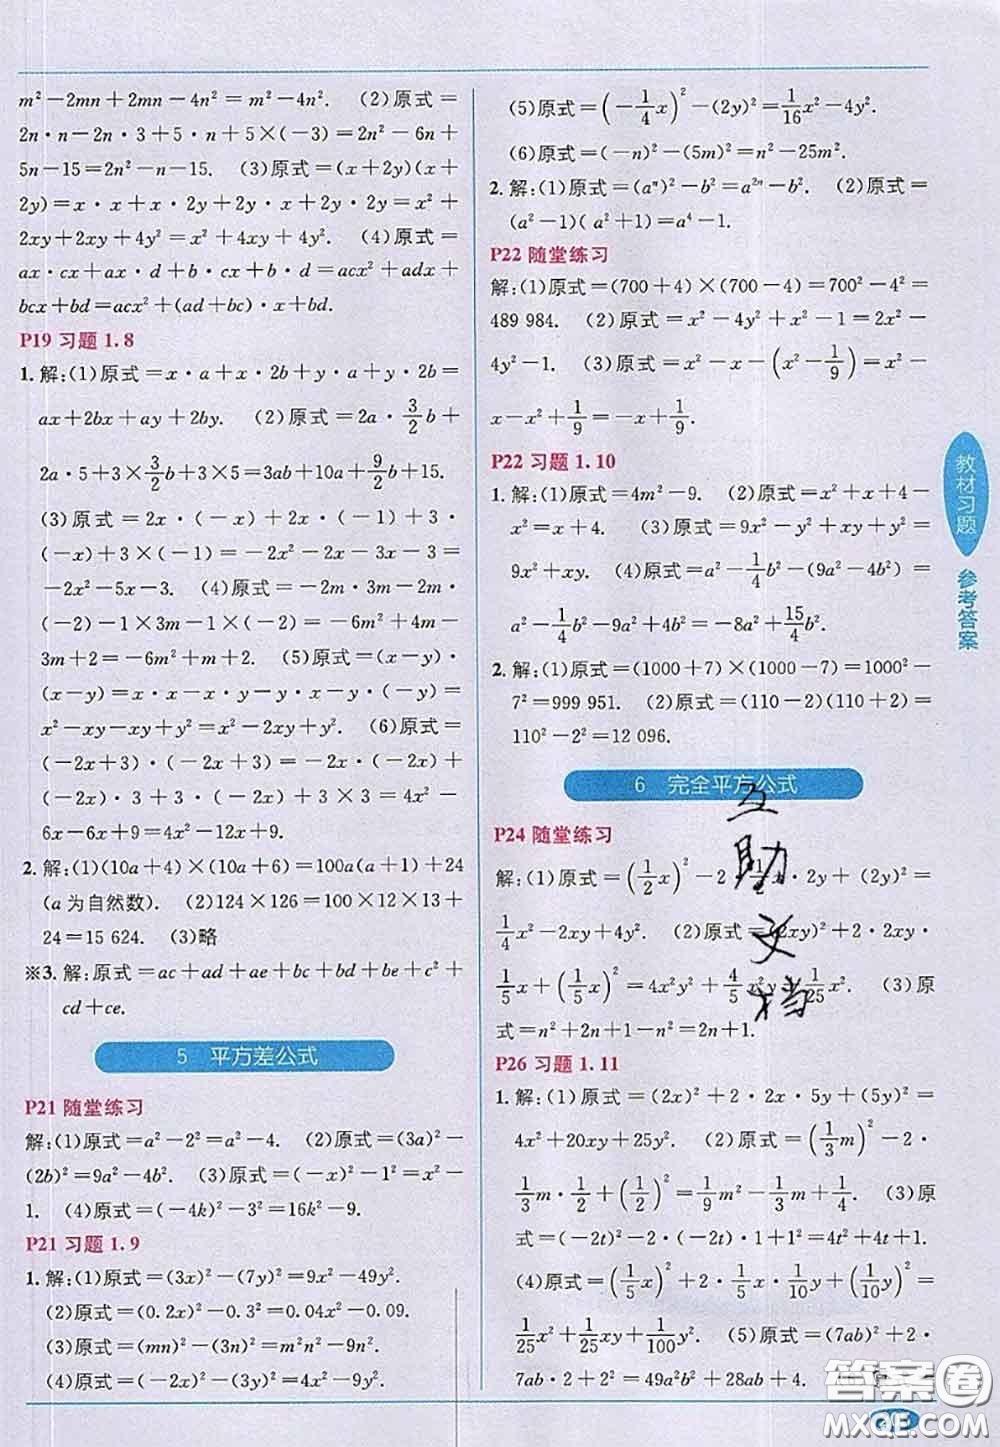 m²－2mn＋2mn－4n²＝m²－4n². (2)原式＝
2n·n－2n·3＋5·n＋5×(－3)＝2n²－6n＋
5n－15＝2n²－n－15. (3)原式＝(x＋2y)(x＋
2y)＝x·x＋x·2y＋2y·x＋2y·2y＝x²＋
2xy＋2xy＋4y²＝x²＋4xy＋4y². (4)原式＝
ax·cx＋ax·d＋b·cx＋b·d＝acx²＋adx＋
bcx＋bd＝acx²＋(ad＋bc)·x＋bd.
P19 习题 1.8
1. 解:(1)原式＝x·a＋x·2b＋y·a＋y·2b＝
ax＋2bx＋ay＋2by. (2)原式＝2a·3/2 b＋
2a·5＋3×3/2 b＋3×5＝3ab＋10a＋9/2 b＋15.
(3)原式＝2x·(－x)＋2x·(－1)＋3·
(－x)＋3×(－1)＝－2x²－2x－3x－3＝
－2x²－5x－3. (4)原式＝－2m·3m－2m·
(－2)－1×3m－1×(－2)＝－6m²＋4m－
3m＋2＝－6m²＋m＋2. (5)原式＝(x－y)·
(x－y)＝x·x－x·y－y·x－y·(－y)＝
x²－xy－xy＋y²＝x²－2xy＋y². (6)原式＝
(－2x＋3)·(－2x＋3)＝(－2x)·(－2x)＋
(－2x)·3＋3·(－2x)＋3×3＝4x²－
6x－6x＋9＝4x²－12x＋9.
2. 解:(1)(10a＋4)×(10a＋6)＝100a(a＋1)＋24
(a 为自然数). (2)124×126＝100×12×13＋
24＝15 624. (3)略
※3. 解:原式＝ac＋ad＋ae＋bc＋bd＋be＋c²＋
cd＋ce.
5 平方差公式
P21 随堂练习
解:(1)原式＝a²－2²＝a²－4. (2)原式＝(3a)²－
(2b)²＝9a²－4b². (3)原式＝(－x)²－1²＝x²－
1. (4)原式＝(－4k)²－3²＝16k²－9.
P21 习题 1.9
1. 解:(1)原式＝(3x)²－(7y)²＝9x²－49y².
(2)原式＝(0.2x)²－0.3²＝0.04x²－0.09.
(3)原式＝(mn)²－(3n)²＝m²n²－9n².
(4)原式＝(－2x)²－(3y)²＝4x²－9y².
(5)原式＝(－1/4 x)²－(2y)²＝1/16 x²－4y².
(6)原式＝(－n)²－(5m)²＝n²－25m².
2. 解:(1)原式＝(aⁿ)²－b²＝a²ⁿ－b². (2)原式＝
(a²－1)(a²＋1)＝a⁴－1.
P22 随堂练习
解:(1)原式＝(700＋4)×(700－4)＝700²－4²＝
489 984. (2)原式＝x²－4y²＋x²－1＝2x²－
4y²－1. (3)原式＝x²－x－(x²－1/9)＝x²－
x－x²＋1/9＝－x＋1/9.
P22 习题 1.10
1. 解:(1)原式＝4m²－9. (2)原式＝x²＋x＋4－
x²＝x＋4. (3)原式＝9x²－y²＋xy＋y²＝
9x²＋xy. (4)原式＝a²－1/4 b²－(9a²－4b²)＝
a²－1/4 b²－9a²＋4b²＝－8a²＋15/4 b².
2. 解:(1)原式＝(1000＋7)×(1000－7)＝1000²－
7²＝999 951. (2)原式＝(110－2)(110＋2)＝
110²－2²＝12 096.
6 完全平方公式
P24 随堂练习
解:(1)原式＝(1/2 x)²－2·1/2 x·2y＋(2y)²＝
1/4 x²－2xy＋4y². (2)原式＝(2xy)²＋2·2xy·
1/5 x＋(1/5 x)²＝4x²y²＋4/5 x²y＋1/25 x². (3)原
式＝n²＋2n＋1－n²＝2n＋1.
P26 习题 1.11
1. 解:(1)原式＝(2x)²＋2·2x·5y＋(5y)²＝
4x²＋20xy＋25y². (2)原式＝(1/3 m)²－2·
1/3 m·1/2＋(1/2)²＝1/9 m²－1/3 m＋1/4. (3)原
式＝(－2t)²－2·(－2t)·1＋1²＝4t²＋4t＋1.
(4)原式＝(1/5 x)²＋2·1/5 x·1/10 y＋(1/10 y)²＝
1/25 x²＋1/25 xy＋1/100 y². (5)原式＝(7ab)²＋2·
7ab·2＋2²＝49a²b²＋28ab＋4.
教材习题
参考答案
互助文档
答案圈
MXQE.COM